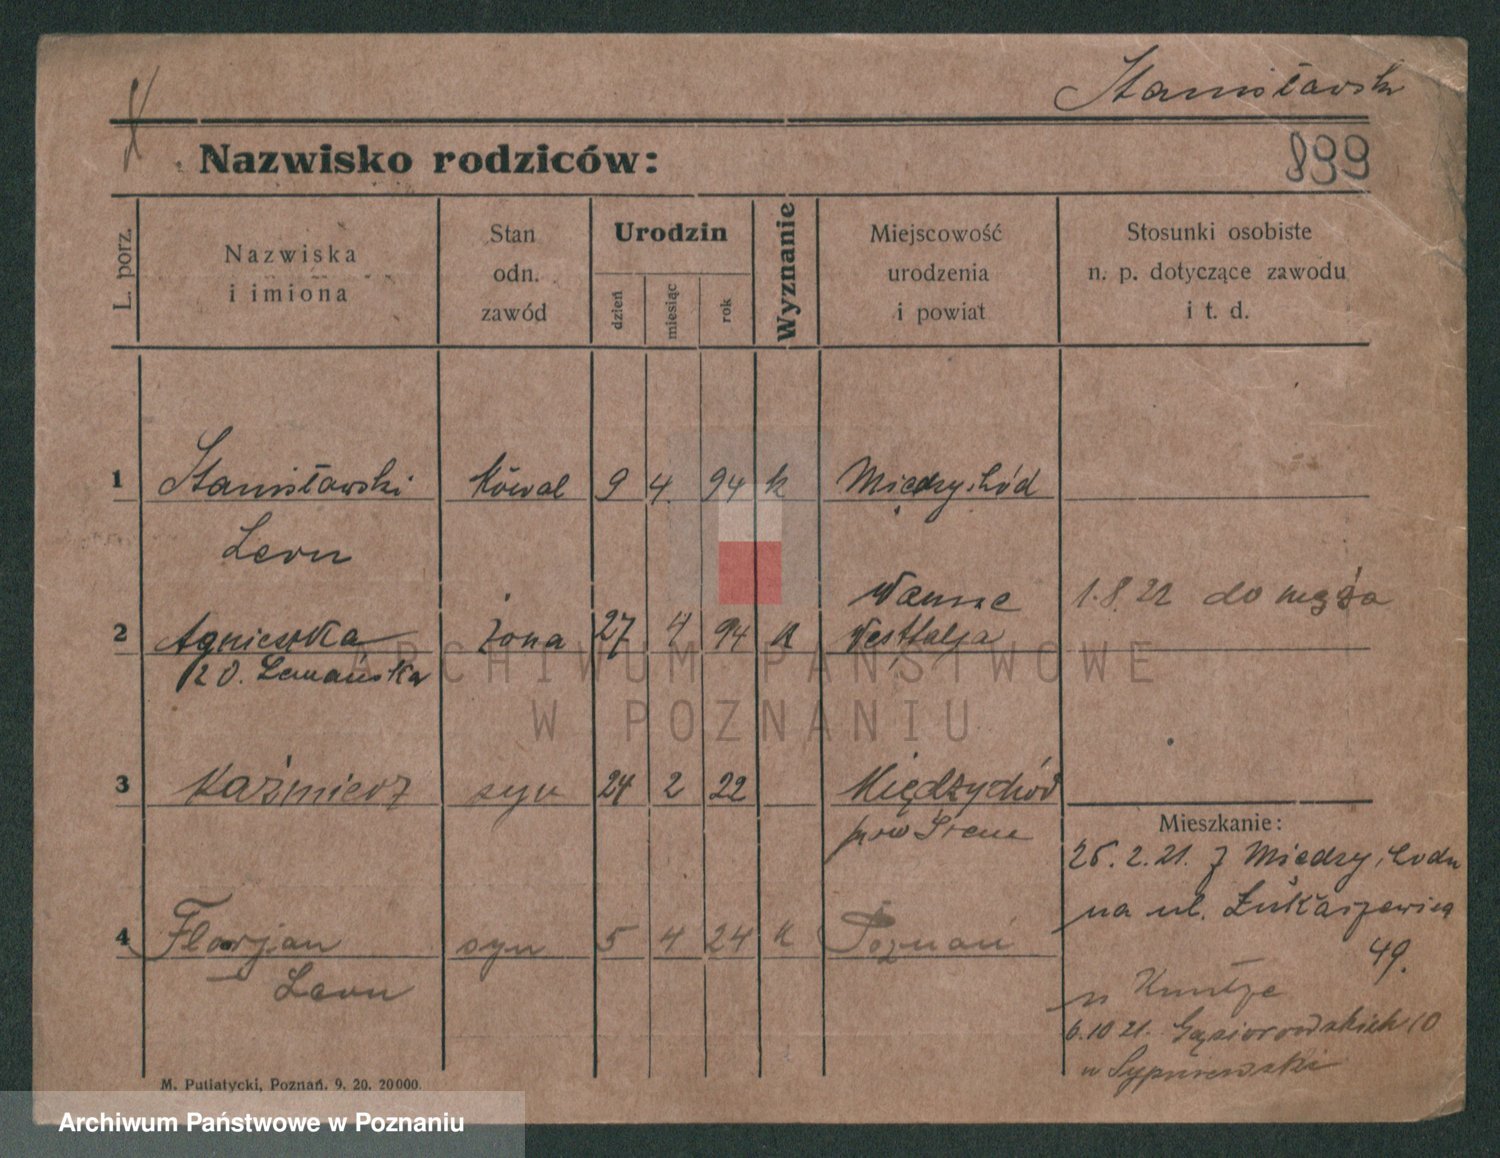 Stanisławski
Nazwisko rodziców:
899
L. porz.
Nazwiska
i imiona
Stan
odn.
zawód
Urodzin
dzień
miesiąc
rok
Wyznanie
Miejscowość
urodzenia
i powiat
Stosunki osobiste
n. p. dotyczące zawodu
i t. d.
1 Stanisławski Kowal 9 4. 94 k Międzychód
Leon
Wanne 1.8.22 do męża
2 Agnieszka żona 27 4 94 k Westfalja
z d. Lemańska
3 Kaźmierz syn 24 2 22 Międzychód
pow Śrem
Mieszkanie:
25.2.21. z Międzychodu
na ul. Łukaszewicza
49.
4 Florjan syn 5 4 24 k Poznań
Leon
u Kuntze
6.10 21. Gąsiorowskich 10
u Sypniewski
M. Putiatycki, Poznań. 9. 20. 20000.
ARCHIWUM PAŃSTWOWE
W POZNANIU
Archiwum Państwowe w Poznaniu